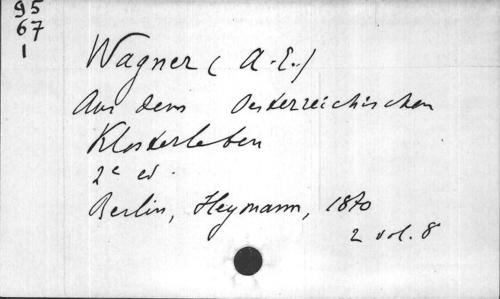 95
67
1
Wagner (A.-E.)
Aus dem Oesterreichischen
Klosterleben
2e ed.
Berlin, Heymann, 1870
2 vol. 8